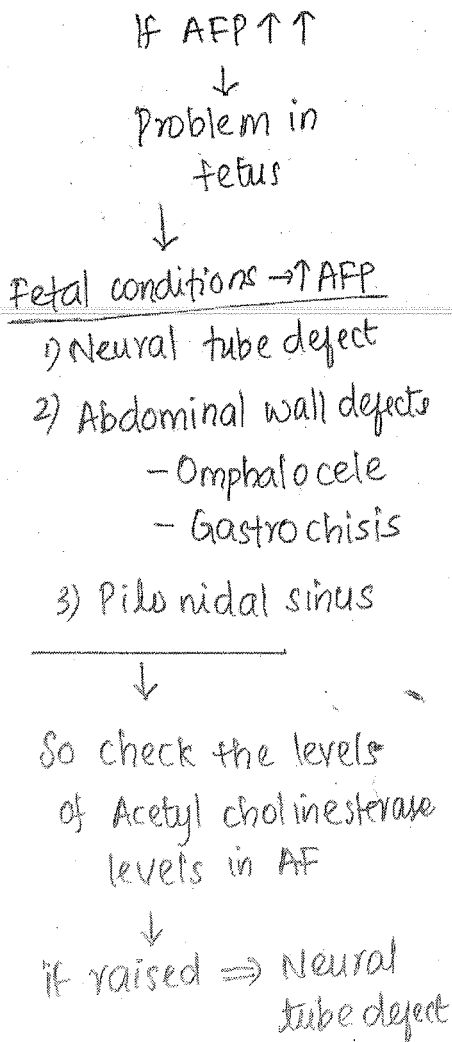 If AFP ↑ ↑
↓
Problem in
fetus
↓
Fetal conditions → ↑ AFP
1) Neural tube defect
2) Abdominal wall defects
- Omphalocele
- Gastrochisis
3) Pilonidal sinus
↓
So check the levels
of Acetyl cholinesterase
levels in AF
↓
if raised ⇒ Neural
tube defect